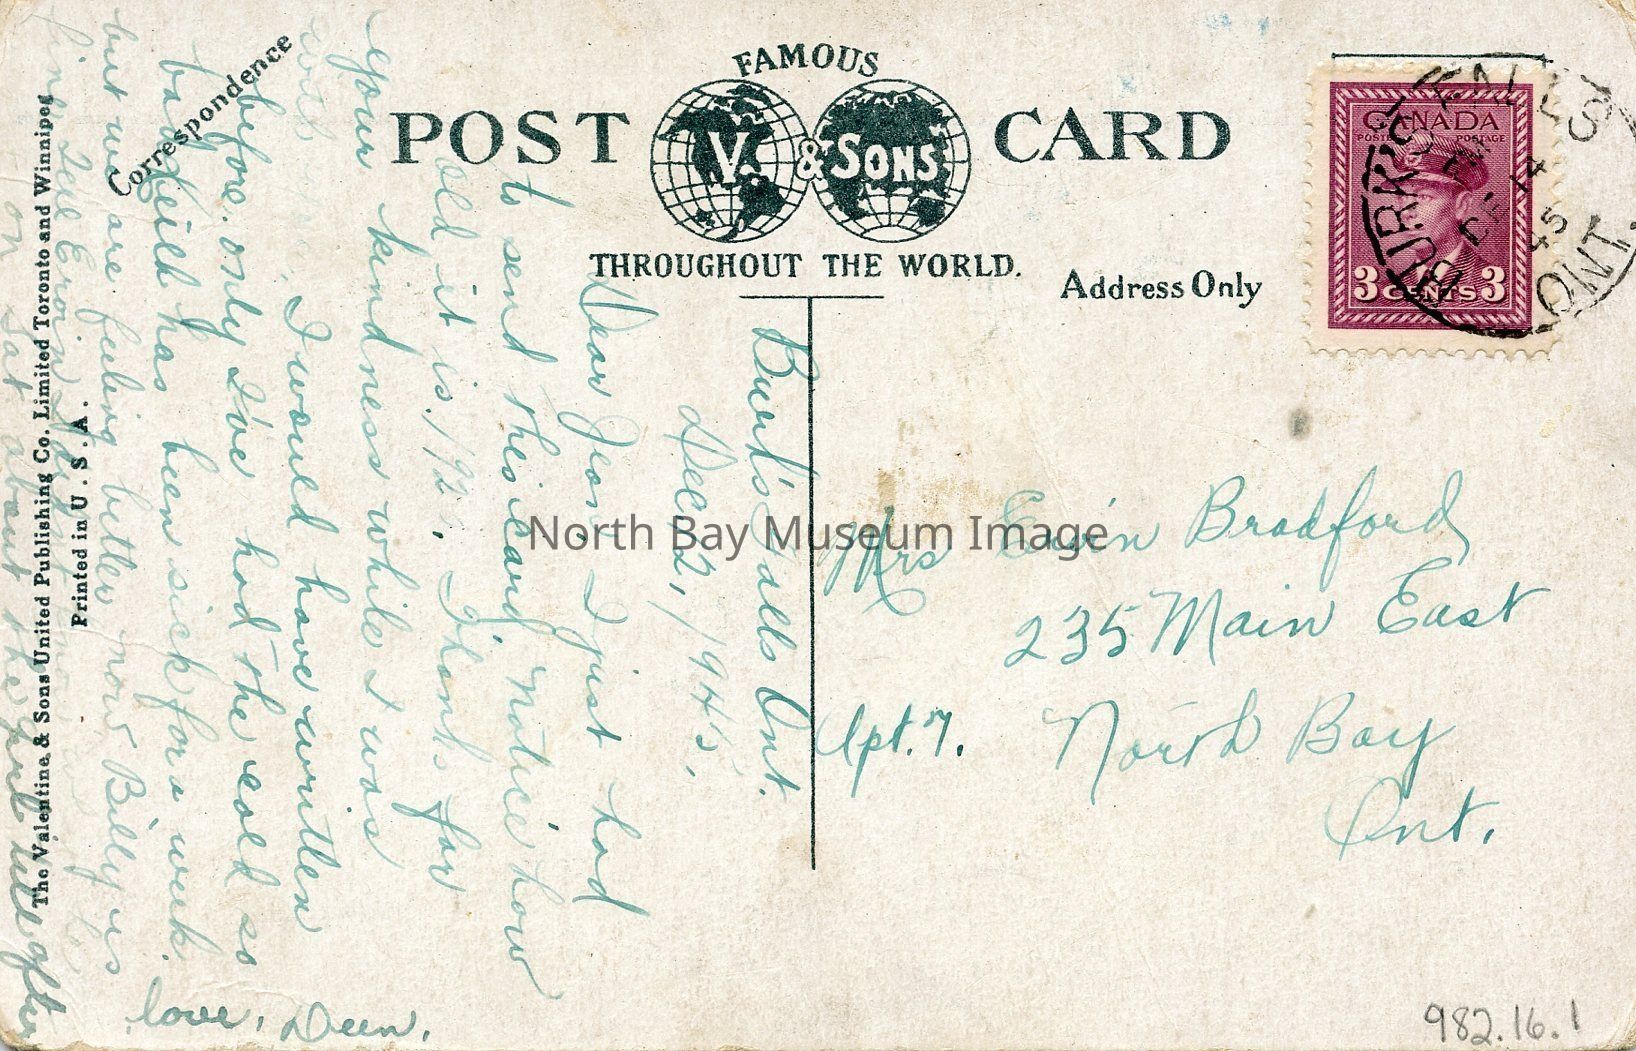 FAMOUS
POST CARD
V. & SONS
THROUGHOUT THE WORLD.
Correspondence
Address Only
CANADA
POSTES POSTAGE
3 CENTS 3
BURK'S FALLS
DE 14
45
ONT.
Burk's Falls Ont.
Dec 12, 1945.
Dear Jean, I just had
to send this card, notice how
old it is, 1921. Thanks for
your kindness while I was
with
I would have written
before. only I've had the cold so
bad, Keith has been sick for a week.
but we are feeling better now, Billy is
fine
on Sat about the
after
love, Deen.
Mrs Ervin Bradford
235 Main East
Apt. 7. North Bay
Ont.
The Valentine & Sons United Publishing Co. Limited Toronto and Winnipeg
Printed in U. S. A.
North Bay Museum Image
982.16.1